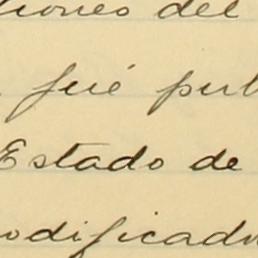 iones del
fué pub
Estado de
odificado